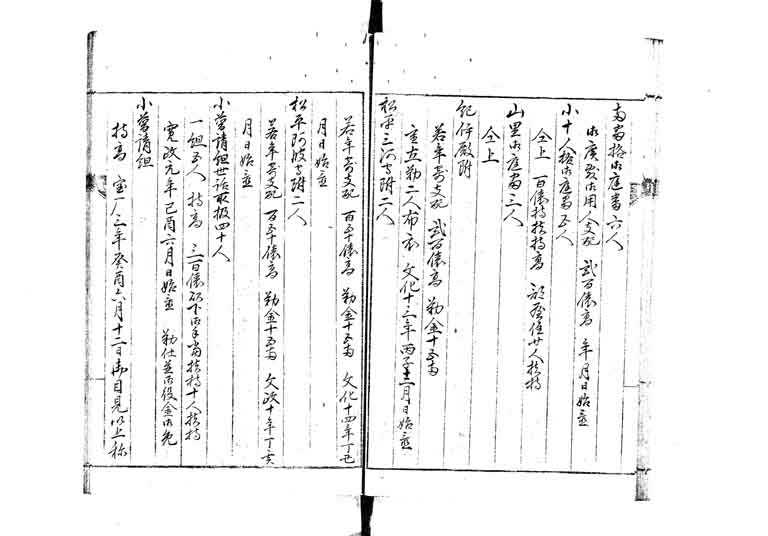 両番格御庭番六人
御広敷御用人支配 弐百俵高 年月日始並
小十人格御庭番五人
仝上 百俵持扶持高 部屋住廿人扶持
山里御庭番三人
仝上
紀伊殿附
若年寄支配 弐百俵高 勤金十五両
重立勤二人布衣 文化十三年丙子十二月日始並
松平三河守附二人
若年寄支配 百五十俵高 勤金十五両 文化十四年丁丑
月日始並
松平阿波守附二人
若年寄支配 百五十俵高 勤金十五両 文政十年丁亥
月日始並
小普請組世話取扱四十人
一組五人 持高 三百俵以下御手当扶持十人扶持
寛政元年己酉六月日始並 勤仕並御役金御免
小普請組
持高 宝 三年癸酉六月十二日御目見以上称